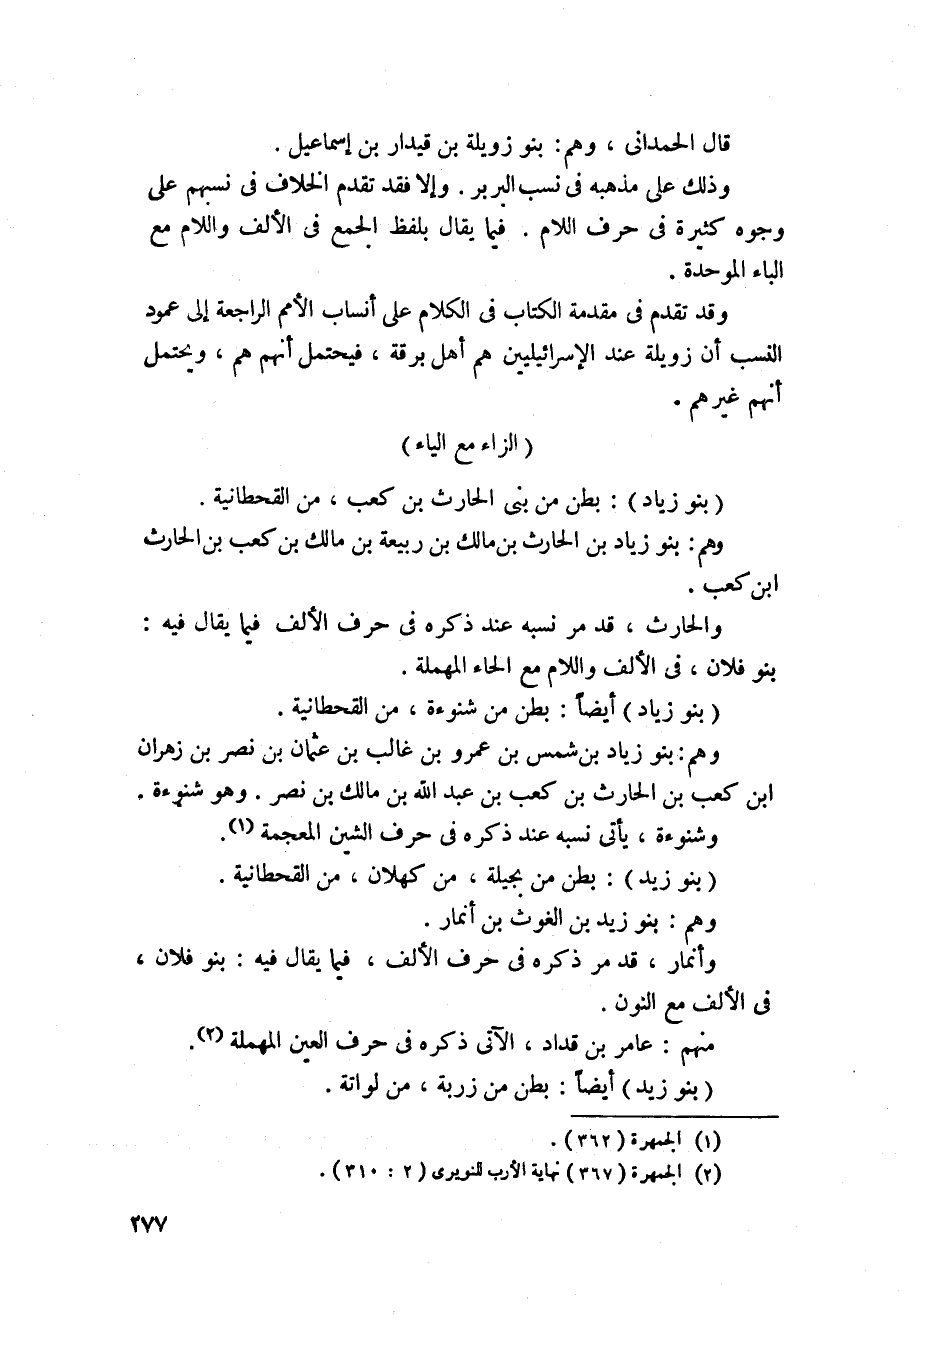 قال الحمدانى ، وهم: بنو زويلة بن قيدار بن إسماعيل .
وذلك على مذهبه فى نسب البربر . وإلا فقد تقدم الخلاف فى نسبهم على
وجوه كثيرة فى حرف اللام . فيما يقال بلفظ الجمع فى الألف واللام مع
الباء الموحدة .
وقد تقدم فى مقدمة الكتاب فى الكلام على أنساب الأمم الراجعة إلى عمود
النسب أن زويلة عند الإسرائيليين هم أهل برقة ، فيحتمل أنهم هم ، ويحتمل
أنهم غيرهم .
( الزاء مع الياء )
( بنو زياد ) : بطن من بنى الحارث بن كعب ، من القحطانية .
وهم: بنو زياد بن الحارث بن مالك بن ربيعة بن مالك بن كعب بن الحارث
ابن كعب .
والحارث ، قد مر نسبه عند ذكره فى حرف الألف فيما يقال فيه :
بنو فلان ، فى الألف واللام مع الحاء المهملة .
( بنو زياد ) أيضاً : بطن من شنوءة ، من القحطانية .
وهم: بنو زياد بن شمس بن عمرو بن غالب بن عثمان بن نصر بن زهران
ابن كعب بن الحارث بن كعب بن عبد الله بن مالك بن نصر . وهو شنوءة .
وشنوءة ، يأتى نسبه عند ذكره فى حرف الشين المعجمة (١).
( بنو زيد ) : بطن من بجيلة ، من كهلان ، من القحطانية .
وهم : بنو زيد بن الغوث بن أنمار .
وأنمار ، قد مر ذكره فى حرف الألف ، فيما يقال فيه : بنو فلان ،
فى الألف مع النون .
منهم : عامر بن قداد ، الآتى ذكره فى حرف العين المهملة (٢).
( بنو زيد ) أيضاً : بطن من زربة ، من لواتة .
(١) الجمهرة ( ٣٦٢ ) .
(٢) الجمهرة ( ٣٦٧ ) نهاية الأرب للنويرى ( ٢ : ٣١٠ ) .
٢٧٧